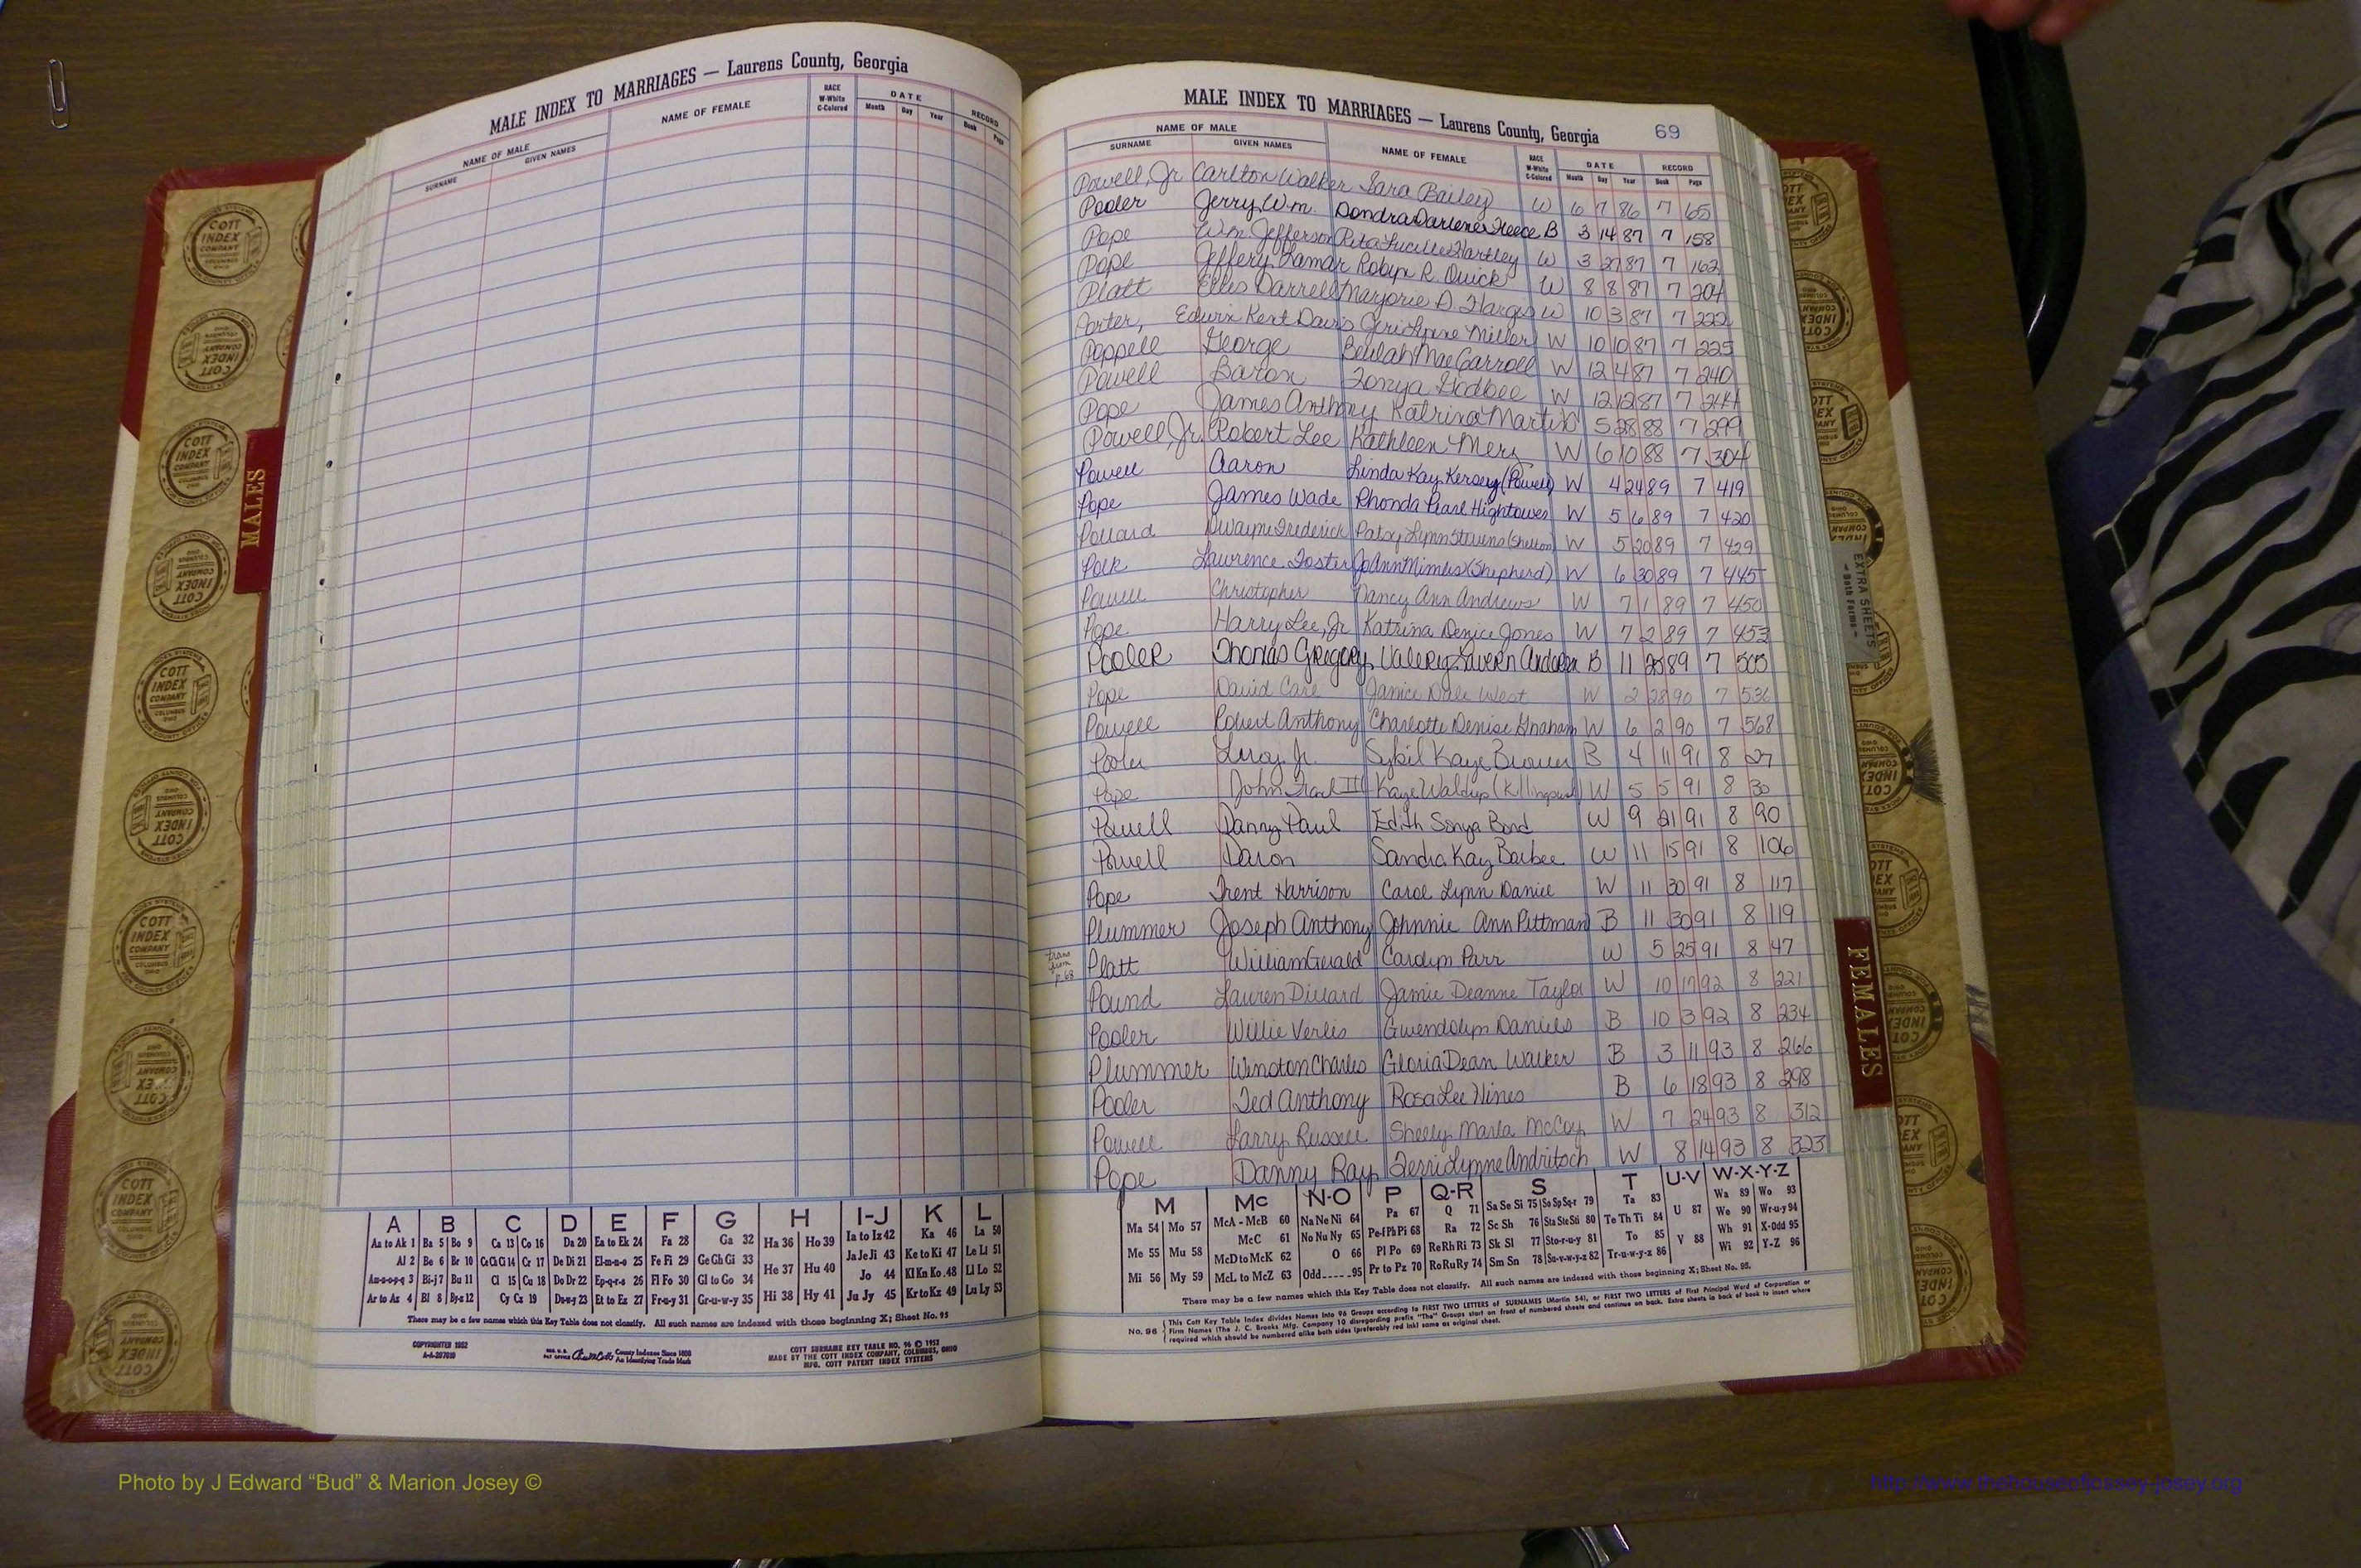 MALE INDEX TO MARRIAGES — Laurens County, Georgia
NAME OF MALE
SURNAME GIVEN NAMES
NAME OF FEMALE
RACE
W-White
C-Colored
DATE
Month Day Year
RECORD
Book Page
MALE INDEX TO MARRIAGES — Laurens County, Georgia 69
NAME OF MALE
SURNAME GIVEN NAMES
NAME OF FEMALE
RACE
W-White
C-Colored
DATE
Month Day Year
RECORD
Book Page
Powell, Jr Carlton Walker Sara Bailey W 6 7 86 7 65
Pooler Jerry Wm. Dondra Darlene Fleece B 3 14 87 7 158
Pope Wm. Jefferson Rita Lucille Hartley W 3 27 87 7 162
Pope Jeffery Lamar Robyn R. Quick W 8 8 87 7 204
Platt Ellis Darrell Marjorie D. Harges W 10 3 87 7 222
Porter, Edwin Kent Davis Jeri Lynne Miller W 10 10 87 7 225
Poppell George Beulah Mae Carroll W 12 4 87 7 240
Powell Baron Tonya Godbee W 12 12 87 7 244
Pope James Anthony Katrina Martin 5 28 88 7 299
Powell, Jr. Robert Lee Kathleen Merz W 6 10 88 7 304
Powell Aaron Linda Kay Kersey (Powell) W 4 24 89 7 419
Pope James Wade Rhonda Pearl Hightower W 5 6 89 7 420
Pollard Dwayne Frederick Patsy Lynn Stevens (Shelton) W 5 20 89 7 429
Polk Lawrence Foster JoAnn Mimbs (Shepherd) W 6 30 89 7 445
Powell Christopher Nancy Ann Andrews W 7 1 89 7 450
Pope Harry Lee, Jr Katrina Denice Jones W 7 2 89 7 453
Pooler Thomas Gregory Valerie Lavern B 11 89 7
Pope David Carl Janice Dale West W 2 28 90 7 536
Powell Robert Anthony Charlotte Denise Graham W 6 2 90 7 568
Pooler Leroy, Jr. Sybil Kaye Brown B 4 11 91 8 27
Pope John III Kaye Waldrep W 5 5 91 8 30
Powell Danny Paul Edith Sonya Bond W 9 21 91 8 90
Powell Daron Sandra Kay Barbee W 11 15 91 8 106
Pope Trent Harrison Carol Lynn Daniel W 11 30 91 8 117
Plummer Joseph Anthony Johnnie Ann Pittman B 11 30 91 8 119
trans from p.68 Platt William Gerald Carolyn Parr W 5 25 91 8 47
Pound Lauren Dillard Jamie Deanne Taylor W 10 17 92 8 221
Pooler Willie Verlis Gwendolyn Daniels B 10 3 92 8 234
Plummer Winston Charles Gloria Dean Walker B 3 11 93 8 266
Pooler Ted Anthony Rosa Lee Hines B 6 18 93 8 298
Powell Larry Russell Shelly Marla McCoy W 7 24 93 8 312
Pope Danny Ray Terri Lynne Andritsch W 8 14 93 8 323
A B C D E F G H I-J K L
Aa to Ak 1 Ba 5 Bo 9 Ca 13 Co 16 Da 20 Ea to Ek 24 Fa 28 Ga 32 Ha 36 Ho 39 Ia to Iz 42 Ka 46 La 50
Al 2 Be 6 Br 10 Ce Ch Ci 14 Cr 17 De Di 21 El-m-n-o 25 Fe Fi 29 Ge Gh Gi 33 He 37 Hu 40 Ja Je Ji 43 Ke to Ki 47 Le Li 51
Am-n-o-p-q 3 Bi-j 7 Bu 11 Cl 15 Cu 18 Do Dr 22 Ep-q-r-s 26 Fl Fo 30 Gl to Go 34 Jo 44 Kl Kn Ko 48 Ll Lo 52
Ar to Az 4 Bl 8 By-z 12 Cy Cz 19 Du-w-y 23 Et to Ez 27 Fr-u-y 31 Gr-u-w-y 35 Hi 38 Hy 41 Ju Jy 45 Kr to Kz 49 Lu Ly 53
There may be a few names which this Key Table does not classify. All such names are indexed with those beginning X; Sheet No. 95
COPYRIGHTED 1952
A-A-207019
County Indexes Since 1888
An Identifying Trade Mark
COTT SURNAME KEY TABLE NO. 96 © 1952
MADE BY THE COTT INDEX COMPANY, COLUMBUS, OHIO
MFG. COTT PATENT INDEX SYSTEMS
M Mc N-O P Q-R S T U-V W-X-Y-Z
Ma 54 Mo 57 McA - McB 60 Na Ne Ni 64 Pa 67 Q 71 Sa Se Si 75 So Sp Sq-r 79 Ta 83 U 87 Wa 89 Wo 93
Me 55 Mu 58 McC 61 No Nu Ny 65 Pe-f Ph Pi 68 Ra 72 Sc Sh 76 Sta Ste Sti 80 Te Th Ti 84 We 90 Wr-u-y 94
McD to McK 62 O 66 Pl Po 69 Re Rh Ri 73 Sk Sl 77 Sto-r-u-y 81 To 85 V 88 Wh 91 X-Odd 95
Mi 56 My 59 McL to McZ 63 Odd 95 Pr to Pz 70 Ro Ru Ry 74 Sm Sn 78 Su-v-w-y-z 82 Tr-u-w-y-z 86 Wi 92 Y-Z 96
There may be a few names which this Key Table does not classify. All such names are indexed with those beginning X; Sheet No. 95.
No. 96
This Cott Key Table Index divides Names into 96 Groups according to FIRST TWO LETTERS of SURNAMES (Martin 54), or FIRST TWO LETTERS of First Principal Word of Corporation or
Firm Names (The J. C. Brooks Mfg. Company 10 disregarding prefix "The" Groups start on front of numbered sheets and continue on back. Extra sheets in back of book to insert where
required which should be numbered alike both sides (preferably red ink) same as original sheet.
MALES
FEMALES
EXTRA SHEETS
— Both Forms —
COTT INDEX COMPANY COLUMBUS OHIO
Photo by J Edward “Bud” & Marion Josey ©
http://www.thehouseofjossey-josey.org